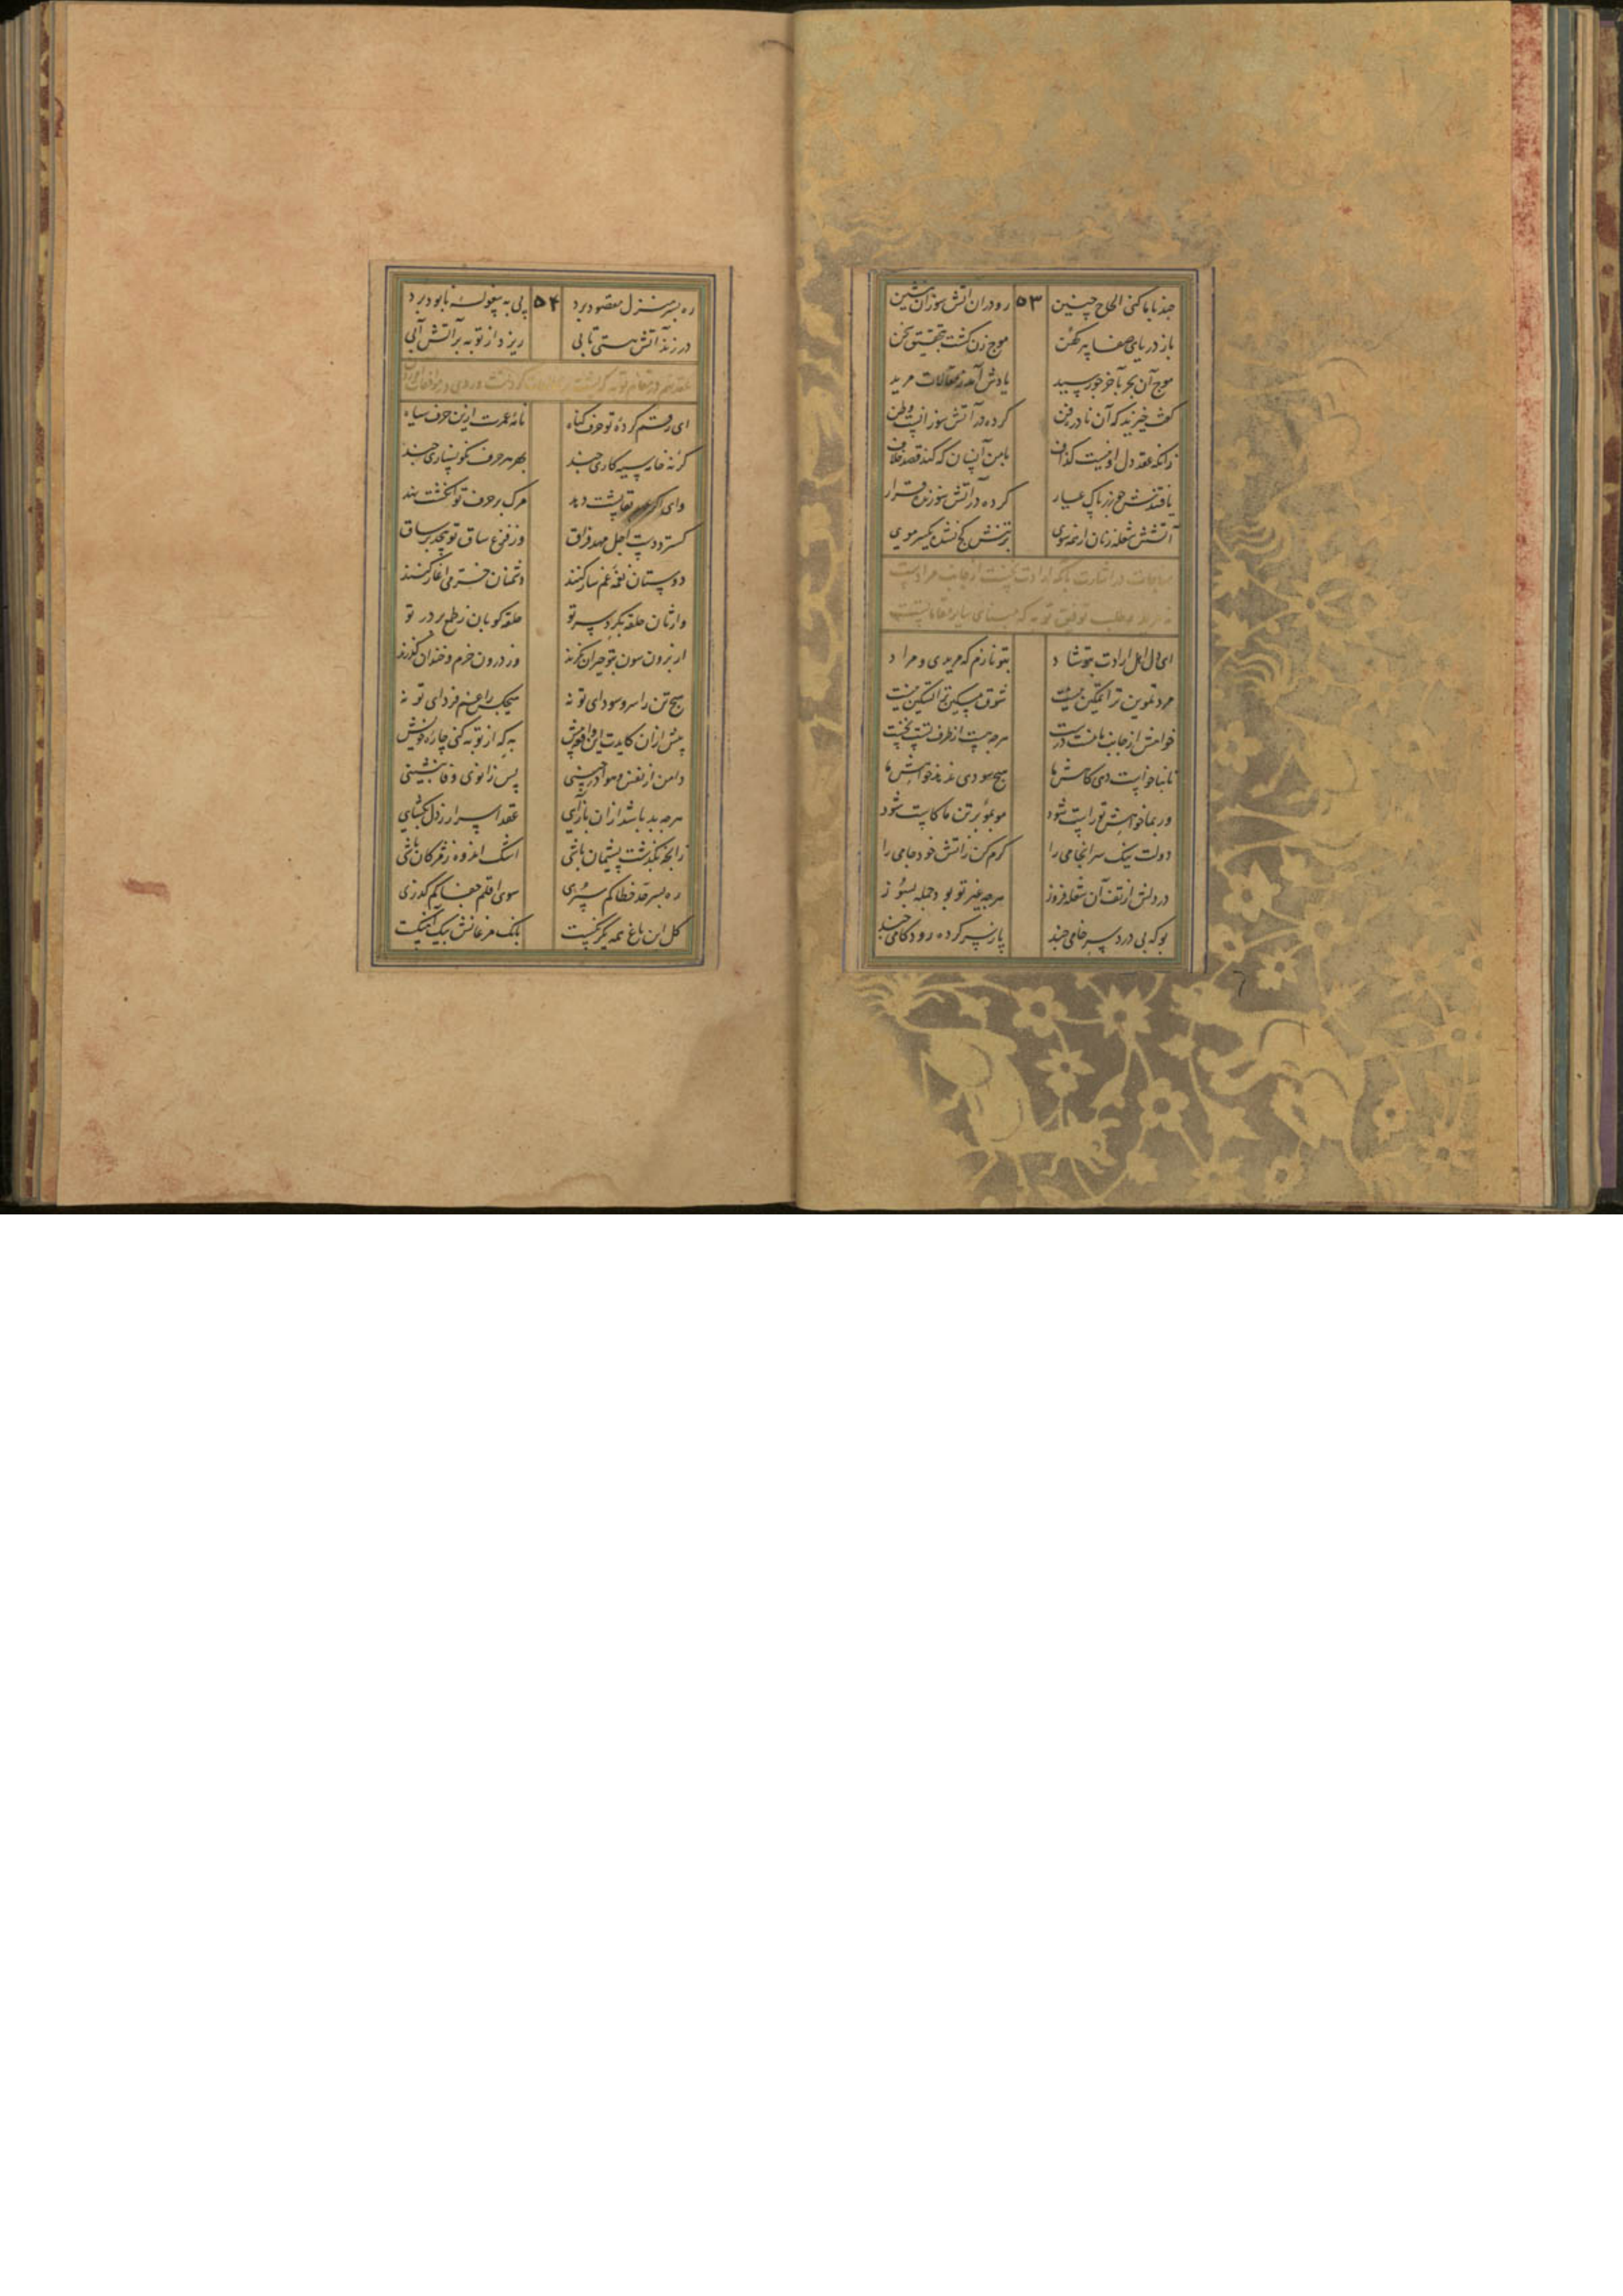 چند با ما کنی الحاح چنین ۵۳ رو در ان اتش سوزان بنشین
باز دریای صفا پیر کهن موج زن کشت بتحقیق سخن
موج آن بحر بآخر چو رسید یادش آمد ز مقالات مرید
کفت خیزید که آن نادره فن کرده در آتش سوزانست وطن
زانکه عقد دل او نیست کذاف با من آنسان که کند قصد خلاف
یافتندش چو زر پاک عیار کرده در آتش سوزنده قرار
آتشش شعله زنان از همه سوی بر تنش کج نشده یکسر موی
مناجات در اشارت بانکه ارادت نخست از جانب مرادست
نه مرید و طلب توفیق توبه که مبنای سایر مقاماتست
ای دل اهل ارادت بتو شاد بتو نازم که مریدی و مراد
مرد تلوین ترا تمکین نیست شوق مسکین ترا تسکین نیست
خواهش از جانب ما نیست درست هرچه هست از طرف تست نخست
تا نیاید ز تو خواهش ما هیچ سودی ندهد خواهش ما
ور بما خواهش تو راست شود مو بمو بر تن ما کاست شود
دولت نیک سرانجامی را کرم کن زاتش خود جامی را
در دلش از تف آن شعله فروز هرچه غیر تو بود جمله بسوز
بو که بی درد سر خامی چند پا ز سر کرده رود کامی چند
ره بسر منزل مقصود برد ۵۴ پی به بیغوله نابود برد
در زند آتش هستی تابی ریزد از توبه بر آتش آبی
ای رقم کرده تو حرف کناه نامه عمرت ازین حرف سیاه
کرنه خامه سیه کاری چند بهر هر حرف نکونساری چند
وای اکر عهد بقا پشت دهد مرک بر حرف تو انکشت نهد
کسترد دست اجل مهد فراق وز فزع ساق تو پیچد بر ساق
دوستان نغمه غم ساز کنند دشمنان خرمی اغاز کنند
وارثان حلقه بکرد سر تو حلقه کوبان ز طمع بر در تو
از برون سون بتو حیران نکرند وز درون خرم و خندان کذرند
هیچ تن را سر و سودای تو نه هیچکس را غم فردای تو نه
پیش ازان کایدت این واقعه پیش به که از توبه کنی چاره خویش
دامن از نفس و هوا در چینی پس زانوی وفا بنشینی
هرچه بد باشد ازان بازآیی عقد اسرار ز دل بکشایی
زانچه بکذشت پشیمان باشی اشک اندوه ز مژکان پاشی
ره بسر حد خطا کم سپری سوی اقلیم جفا کم کذری
کل این باغ همه یکرنکیست بانک مرغانش بیک آهنکیست